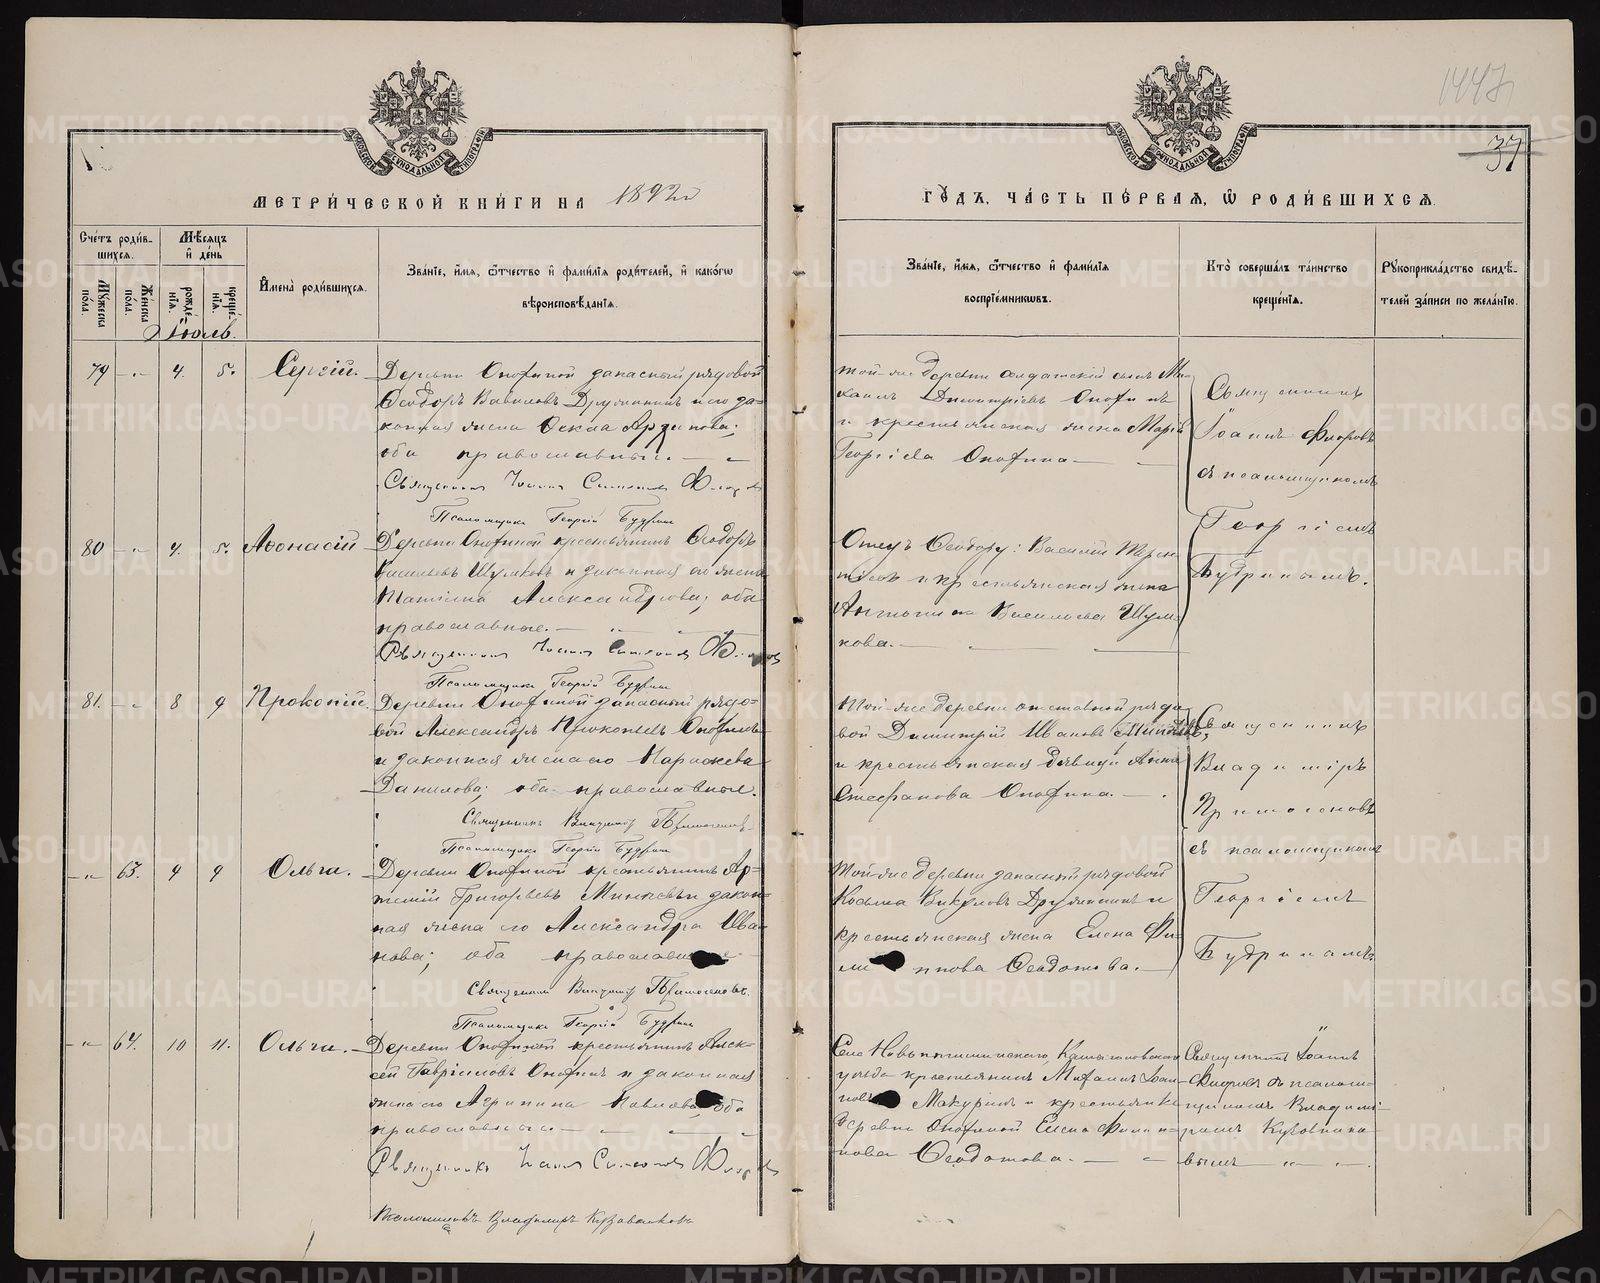 1447
37
МЕТРИ́ЧЕСКОЙ КНИ́ГИ НА 1892й
ГО́ДЪ, ЧА́СТЬ ПЕ́РВАЯ, Ѿ РОДИ́ВШИХСЯ.
Сче́тъ роди́в-
шихся.
Мꙋжеска пола.
Женска пола.
Мѣсяцъ
и де́нь
рожде-
нія.
креще-
нія.
Имена̀ роди́вшихся.
Зва́ніе, и́мя, ѻ҆́тчество и фами́лія роди́телей, и како́гѡ
вѣроисповѣ́данія.
Зва́ніе, и́мя, ѻ҆́тчество и фами́лія
воспріе́мниковъ.
Кто̀ соверша́лъ та́инство
креще́нія.
Рꙋкоприкла́дство свидѣ́-
телей за́писи по жела́нію.
Іюль.
79 -„- 4. 5. Сергій.
Деревни Онофиной запасный рядовой
Ѳеодоръ Вавиловъ Дружининъ и его за-
конная жена
оба православные.
Священникъ Іоаннъ Симеоновъ Флоровъ
Псаломщикъ Георгій Будринъ
той-же деревни солдатский сынъ Ми-
хаилъ Димитріевъ Онофинъ
и крестьянская жена Марія
Георгіева Онофина
Священникъ
Іоаннъ Флоровъ
съ псаломщикомъ
Георгіемъ
Будринымъ.
80 -„- 4. 5. Аѳонасій
Деревни Онофиной крестьянинъ Ѳеодоръ
Васильевъ Шумковъ и законная его жена
Татіана Александрова; оба
православные.
Священникъ Іоаннъ Симеоновъ Флоровъ
Псаломщикъ Георгій Будринъ
Отецъ Ѳеодору: Василій Терен-
тіевъ и крестьянская жена
Васильева Шум-
кова.
81. -„- 8 9 Прокопій.
Деревни Онофиной запасный рядо-
вой Александръ Прокопьевъ Онофинъ
и законная жена его Параскева
Данилова; оба православные.
Священникъ Владиміръ
Псаломщикъ Георгій Будринъ
Той-же деревни отставной рядо-
вой Димитрій Ивановъ
и крестьянская дѣвица Анна
Стефанова Онофина.
Священникъ
Владиміръ
съ псаломщикомъ
Георгіемъ
Будринымъ
-„- 63. 9 9 Ольга.
Деревни Онофиной крестьянинъ Ар-
темій Григорьевъ и закон-
ная жена его Александра Ива-
нова; оба православные
Священникъ Владиміръ
Псаломщикъ Георгій Будринъ
Той-же деревни запасный рядовой
Косьма Викуловъ Дружининъ и
крестьянская жена Елена Фи-
липпова Ѳеодотова.
-„- 64. 10 11. Ольга.
Деревни Онофиной крестьянинъ Алек-
сей Гавріиловъ Онофинъ и законная
жена его Агрипина Павлова; оба
православные.
Священникъ Іоаннъ Симеоновъ Флоровъ
Псаломщикъ Владиміръ
Села Новопышминскаго, Камышловскаго
уѣзда крестьянинъ Іоан-
новъ Макуринъ и крестьянка
деревни Онофиной Елена Филип-
пова Ѳеодотова.
Священникъ Іоаннъ
Флоровъ съ псалом-
щикомъ Владимі-
ромъ
вымъ